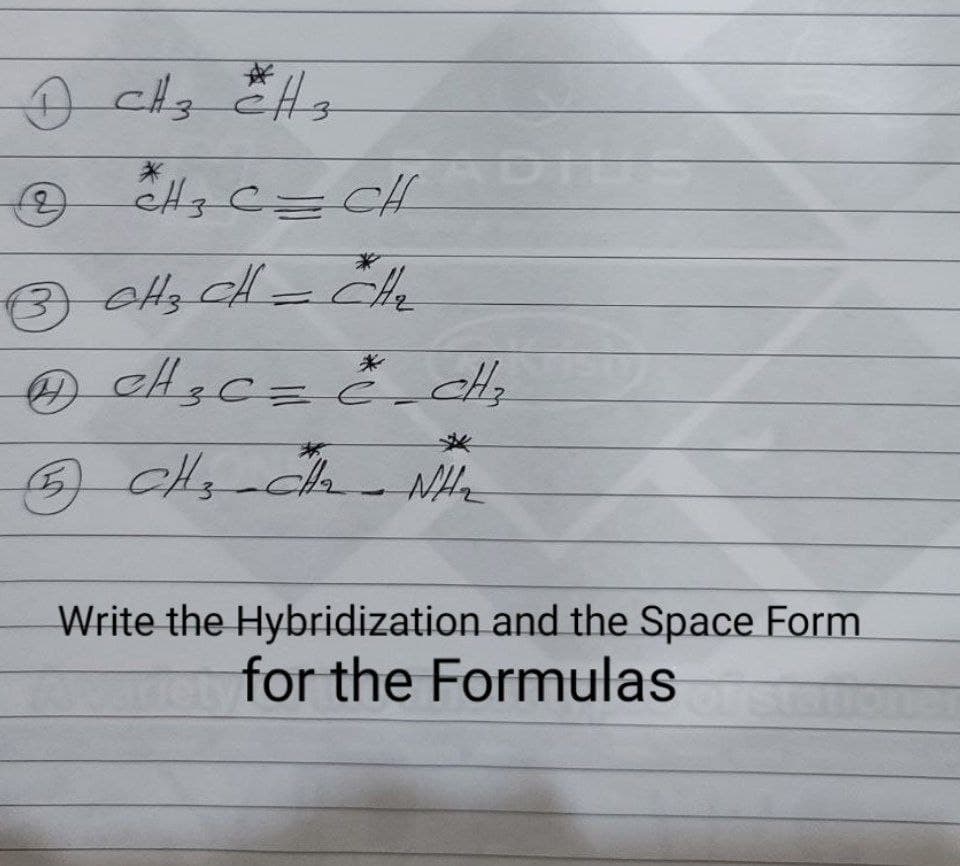 ① CH₃ C*H₃
② C*H₃ C ≡ CH
③ CH₃ CH = C*H₂
④ CH₃ C ≡ C* - CH₃
⑤ CH₃ - C*H₂ - N*H₂
Write the Hybridization and the Space Form
for the Formulas